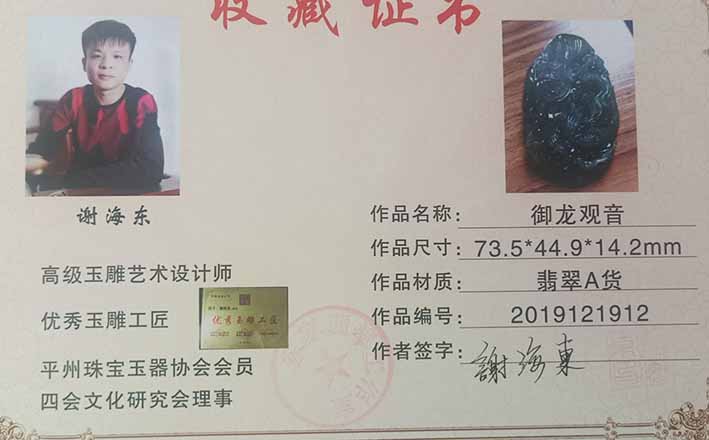 收藏证书
谢海东
高级玉雕艺术设计师
优秀玉雕工匠
优秀玉雕工匠
平州珠宝玉器协会会员
四会文化研究会理事
作品名称：御龙观音
作品尺寸：73.5*44.9*14.2mm
作品材质：翡翠A货
作品编号：2019121912
作者签字：謝海東